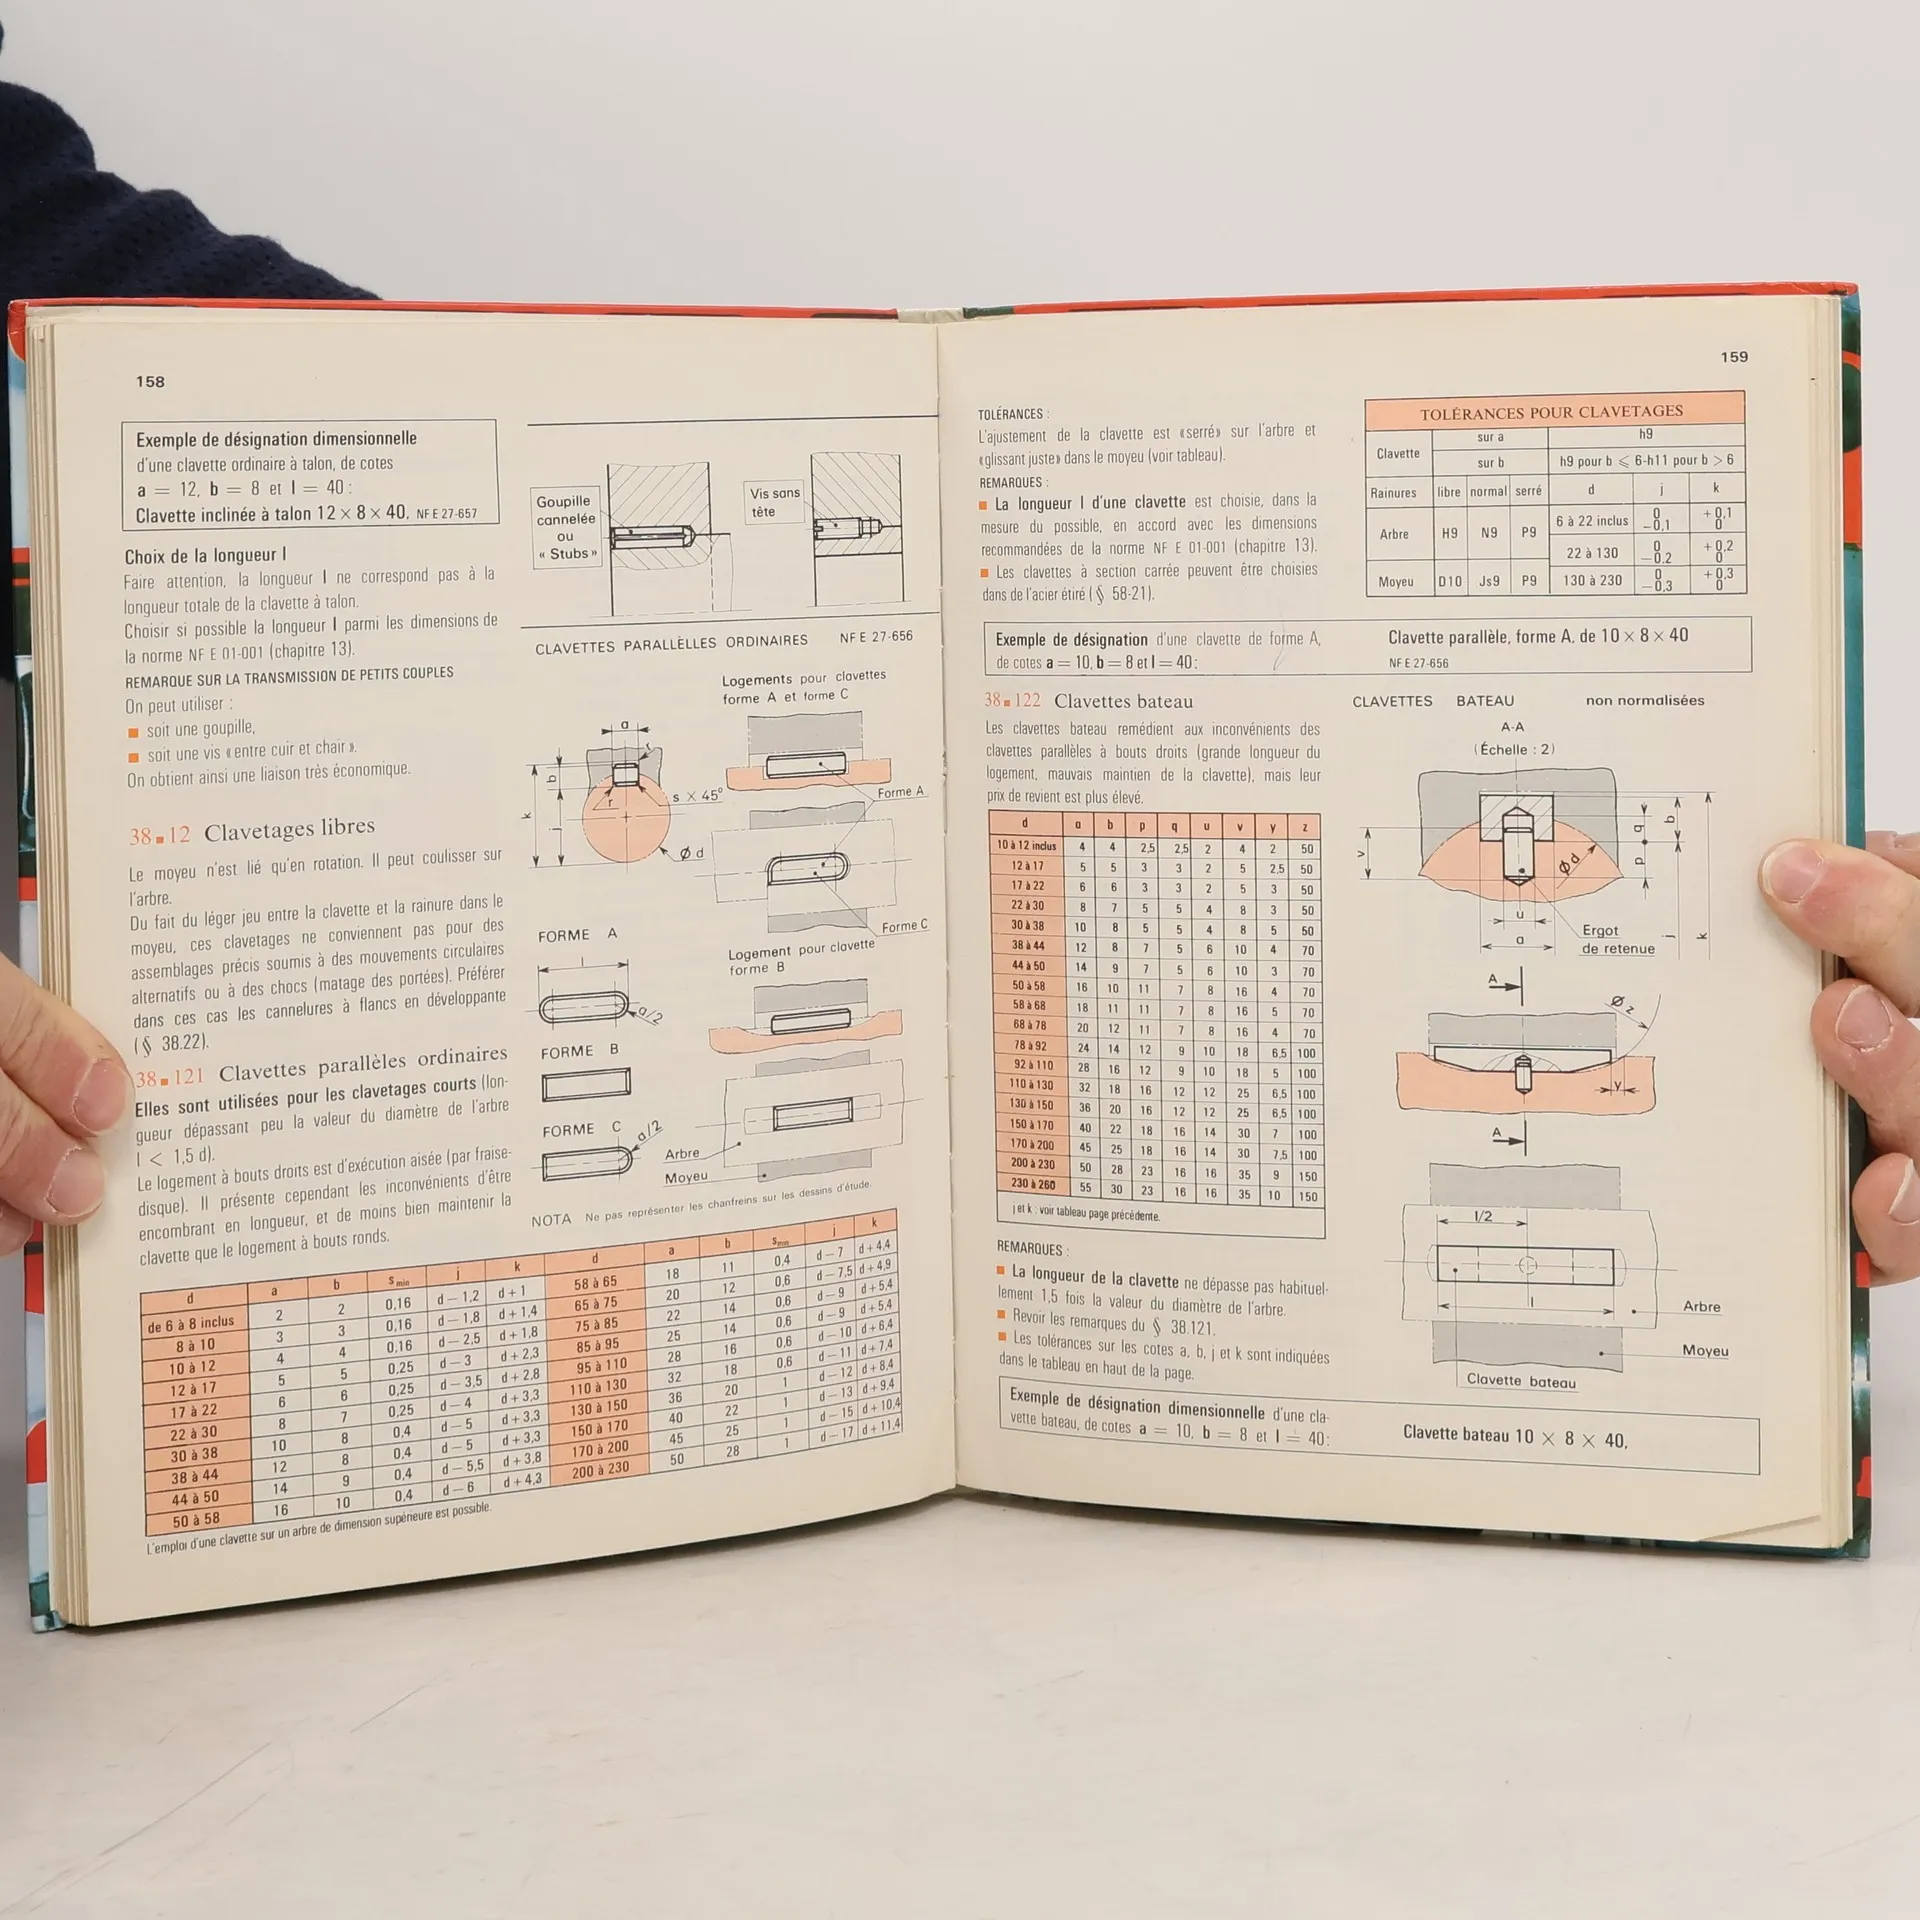 158
Exemple de désignation dimensionnelle
d'une clavette ordinaire à talon, de cotes
a = 12, b = 8 et l = 40 :
Clavette inclinée à talon 12 × 8 × 40, NF E 27-657
Choix de la longueur l
Faire attention, la longueur l ne correspond pas à la
longueur totale de la clavette à talon.
Choisir si possible la longueur l parmi les dimensions de
la norme NF E 01-001 (chapitre 13).
REMARQUE SUR LA TRANSMISSION DE PETITS COUPLES
On peut utiliser :
■ soit une goupille,
■ soit une vis «entre cuir et chair».
On obtient ainsi une liaison très économique.
38■12 Clavetages libres
Le moyeu n'est lié qu'en rotation. Il peut coulisser sur
l'arbre.
Du fait du léger jeu entre la clavette et la rainure dans le
moyeu, ces clavetages ne conviennent pas pour des
assemblages précis soumis à des mouvements circulaires
alternatifs ou à des chocs (matage des portées). Préférer
dans ces cas les cannelures à flancs en développante
(§ 38.22).
38■121 Clavettes parallèles ordinaires
Elles sont utilisées pour les clavetages courts (lon-
gueur dépassant peu la valeur du diamètre de l'arbre
l < 1,5 d).
Le logement à bouts droits est d'exécution aisée (par fraise-
disque). Il présente cependant les inconvénients d'être
encombrant en longueur, et de moins bien maintenir la
clavette que le logement à bouts ronds.
Goupille
cannelée
ou
« Stubs »
Vis sans
tête
CLAVETTES PARALLÈLES ORDINAIRES NF E 27-656
Logements pour clavettes
forme A et forme C
a
r
b
k
j
r
s × 45°
Ø d
Forme A
Forme C
FORME A
l
a/2
Logement pour clavette
forme B
FORME B
FORME C
a/2
Arbre
Moyeu
NOTA Ne pas représenter les chanfreins sur les dessins d'étude.
d a b s min j k
de 6 à 8 inclus 2 2 0,16 d – 1,2 d + 1
8 à 10 3 3 0,16 d – 1,8 d + 1,4
10 à 12 4 4 0,16 d – 2,5 d + 1,8
12 à 17 5 5 0,25 d – 3 d + 2,3
17 à 22 6 6 0,25 d – 3,5 d + 2,8
22 à 30 8 7 0,25 d – 4 d + 3,3
30 à 38 10 8 0,4 d – 5 d + 3,3
38 à 44 12 8 0,4 d – 5 d + 3,3
44 à 50 14 9 0,4 d – 5,5 d + 3,8
50 à 58 16 10 0,4 d – 6 d + 4,3
d a b s min j k
58 à 65 18 11 0,4 d – 7 d + 4,4
65 à 75 20 12 0,6 d – 7,5 d + 4,9
75 à 85 22 14 0,6 d – 9 d + 5,4
85 à 95 25 14 0,6 d – 9 d + 5,4
95 à 110 28 16 0,6 d – 10 d + 6,4
110 à 130 32 18 0,6 d – 11 d + 7,4
130 à 150 36 20 1 d – 12 d + 8,4
150 à 170 40 22 1 d – 13 d + 9,4
170 à 200 45 25 1 d – 15 d + 10,4
200 à 230 50 28 1 d – 17 d + 11,4
L'emploi d'une clavette sur un arbre de dimension supérieure est possible.
159
TOLÉRANCES :
L'ajustement de la clavette est «serré» sur l'arbre et
«glissant juste» dans le moyeu (voir tableau).
REMARQUES :
■ La longueur l d'une clavette est choisie, dans la
mesure du possible, en accord avec les dimensions
recommandées de la norme NF E 01-001 (chapitre 13).
■ Les clavettes à section carrée peuvent être choisies
dans de l'acier étiré (§ 58-21).
TOLÉRANCES POUR CLAVETAGES
Clavette sur a h9
sur b h9 pour b ⩽ 6-h11 pour b > 6
Rainures libre normal serré d j k
Arbre H9 N9 P9 6 à 22 inclus 0 –0,1 +0,1 0
22 à 130 0 –0,2 +0,2 0
Moyeu D10 Js9 P9 130 à 230 0 –0,3 +0,3 0
Exemple de désignation d'une clavette de forme A,
de cotes a = 10, b = 8 et l = 40 :
Clavette parallèle, forme A, de 10 × 8 × 40
NF E 27-656
38■122 Clavettes bateau
Les clavettes bateau remédient aux inconvénients des
clavettes parallèles à bouts droits (grande longueur du
logement, mauvais maintien de la clavette), mais leur
prix de revient est plus élevé.
d a b p q u v y z
10 à 12 inclus 4 4 2,5 2,5 2 4 2 50
12 à 17 5 5 3 3 2 5 2,5 50
17 à 22 6 6 3 3 2 5 3 50
22 à 30 8 7 5 5 4 8 3 50
30 à 38 10 8 5 5 4 8 5 50
38 à 44 12 8 7 5 6 10 4 70
44 à 50 14 9 7 5 6 10 3 70
50 à 58 16 10 11 7 8 16 4 70
58 à 68 18 11 11 7 8 16 5 70
68 à 78 20 12 11 7 8 16 4 70
78 à 92 24 14 12 9 10 18 6,5 100
92 à 110 28 16 12 9 10 18 5 100
110 à 130 32 18 16 12 12 25 6,5 100
130 à 150 36 20 16 12 12 25 6,5 100
150 à 170 40 22 18 16 14 30 7 100
170 à 200 45 25 18 16 14 30 7,5 100
200 à 230 50 28 23 16 16 35 9 150
230 à 260 55 30 23 16 16 35 10 150
j et k : voir tableau page précédente.
REMARQUES :
■ La longueur de la clavette ne dépasse pas habituel-
lement 1,5 fois la valeur du diamètre de l'arbre.
■ Revoir les remarques du § 38.121.
■ Les tolérances sur les cotes a, b, j et k sont indiquées
dans le tableau en haut de la page.
CLAVETTES BATEAU non normalisées
A-A
(Échelle : 2)
v
q
b
p
Ø d
u
a
j
k
Ergot
de retenue
A
Ø z
y
A
l/2
l
Arbre
Moyeu
Clavette bateau
Exemple de désignation dimensionnelle d'une cla-
vette bateau, de cotes a = 10, b = 8 et l = 40:
Clavette bateau 10 × 8 × 40,